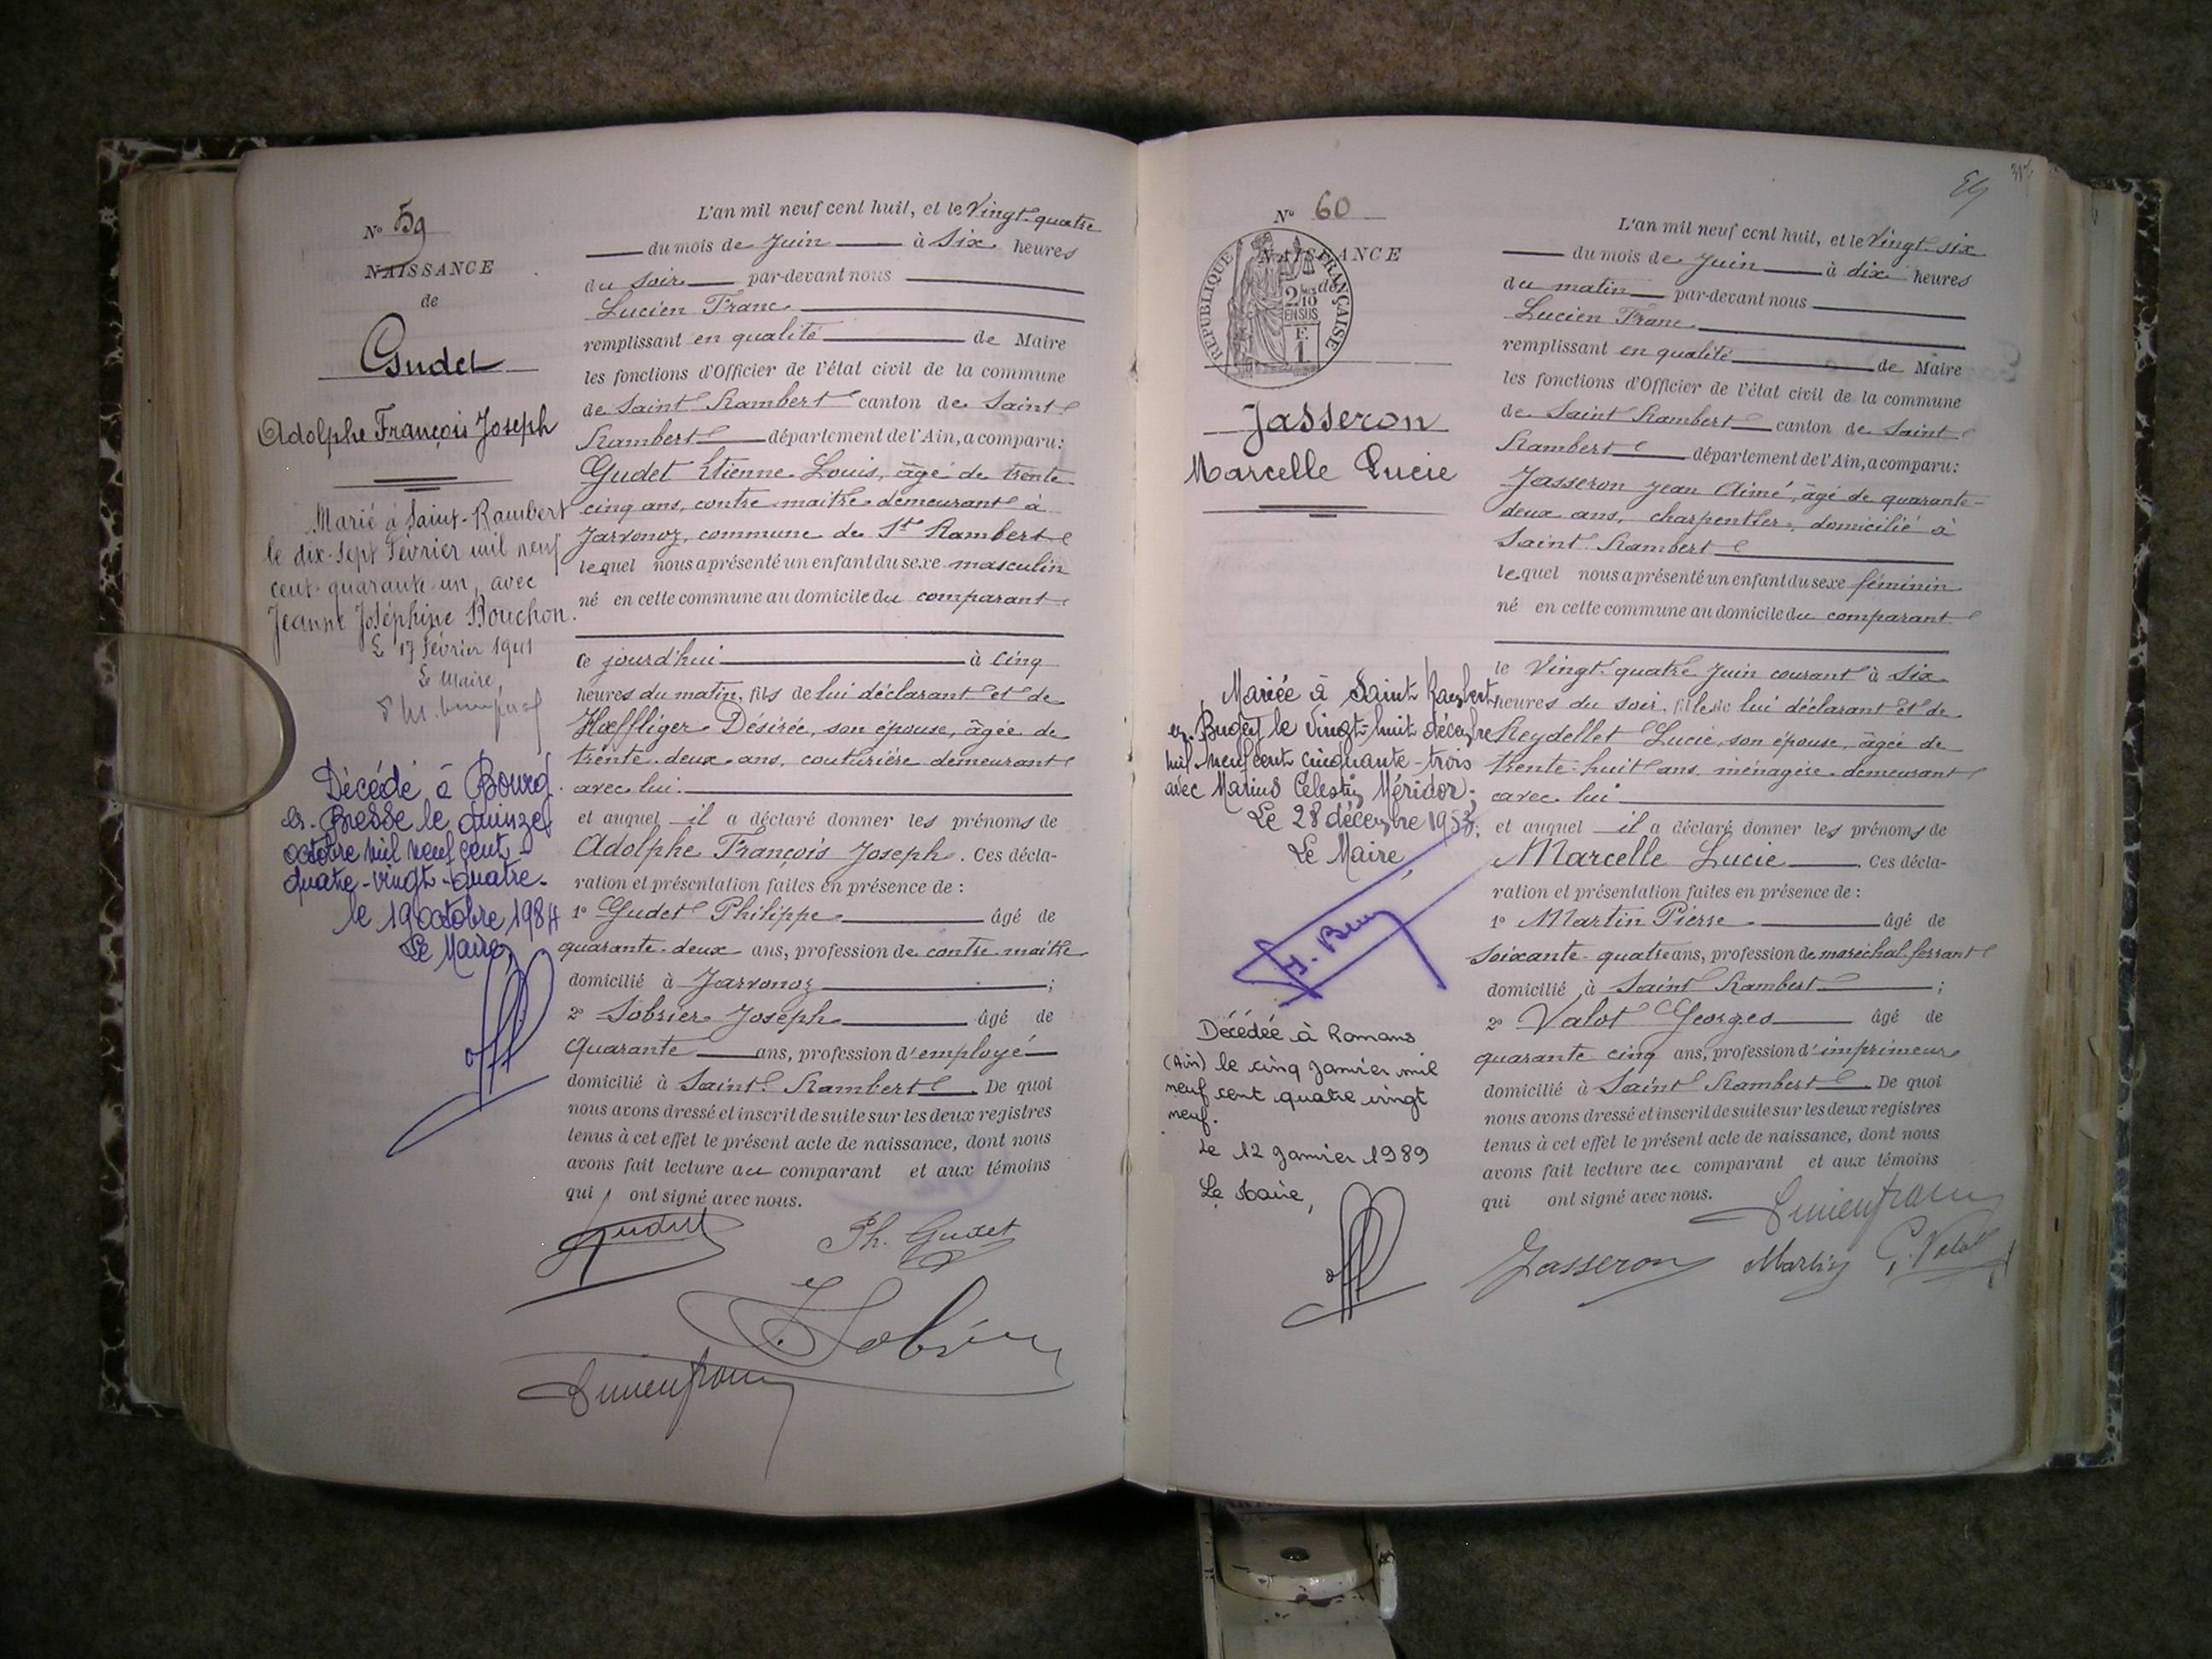 N° 59
NAISSANCE
de
Gudet
Adolphe François Joseph
Marié à Saint-Rambert
le dix-sept Février mil neuf
cent-quarante-un, avec
Jeanne Joséphine Bouchon.
Le 17 Février 1941
Le Maire,
Décédé à Bourg-
en-Bresse le quinze
octobre mil neuf cent-
quatre-vingt-quatre.
le 19 octobre 1984
Le Maire,
L'an mil neuf cent huit, et le Vingt-quatre
du mois de Juin à Six heures
du soir par-devant nous
Lucien Franc
remplissant en qualité de Maire
les fonctions d'Officier de l'état civil de la commune
de Saint Rambert canton de Saint
Rambert département de l'Ain, a comparu:
Gudet Etienne Louis, âgé de trente
cinq ans, contre maitre demeurant à
Jarvonoz, commune de St Rambert
lequel nous a présenté un enfant du sexe masculin
né en cette commune au domicile du comparant
ce jourd'hui à cinq
heures du matin, fils de lui déclarant et de
Hœffliger Désirée, son épouse, âgée de
trente-deux ans, couturière demeurant
avec lui.
et auquel il a déclaré donner les prénoms de
Adolphe François Joseph. Ces décla-
ration et présentation faites en présence de :
1° Gudet Philippe âgé de
quarante-deux ans, profession de contre maitre
domicilié à Jarvonoz ;
2° Sobrier Joseph âgé de
Quarante ans, profession d'employé
domicilié à Saint Rambert De quoi
nous avons dressé et inscrit de suite sur les deux registres
tenus à cet effet le présent acte de naissance, dont nous
avons fait lecture au comparant et aux témoins
qui ont signé avec nous.
Gudet Ph. Gudet
J. Sobrier
Lucien Franc
N° 60
NAISSANCE
de
RÉPUBLIQUE FRANÇAISE
2/10
EN SUS
F
1
Jasseron
Marcelle Lucie
Mariée à Saint Rambert
en-Bugey le vingt-huit décembre
mil neuf cent cinquante-trois
avec Marius Célestin Méridor;
Le 28 décembre 1953;
Le Maire,
Décédée à Romans
(Ain) le cinq janvier mil
neuf cent quatre vingt
neuf.
Le 12 janvier 1989
Le Maire,
L'an mil neuf cent huit, et le Vingt-six
du mois de Juin à dix heures
du matin par-devant nous
Lucien Franc
remplissant en qualité de Maire
les fonctions d'Officier de l'état civil de la commune
de Saint Rambert canton de Saint
Rambert département de l'Ain, a comparu:
Jasseron Jean Aimé, âgé de quarante-
deux ans, charpentier, domicilié à
Saint Rambert
lequel nous a présenté un enfant du sexe féminin
né en cette commune au domicile du comparant
le Vingt-quatre Juin courant à Six
heures du soir, fille de lui déclarant et de
Reydellet Lucie, son épouse, âgée de
trente-huit ans, ménagère demeurant
avec lui
et auquel il a déclaré donner les prénoms de
Marcelle Lucie Ces décla-
ration et présentation faites en présence de :
1° Martin Pierre âgé de
soixante-quatre ans, profession de maréchal ferrant
domicilié à Saint Rambert ;
2° Valot Georges âgé de
quarante cinq ans, profession d'imprimeur
domicilié à Saint Rambert De quoi
nous avons dressé et inscrit de suite sur les deux registres
tenus à cet effet le présent acte de naissance, dont nous
avons fait lecture au comparant et aux témoins
qui ont signé avec nous.
Lucien Franc
Jasseron Martin G. Valot